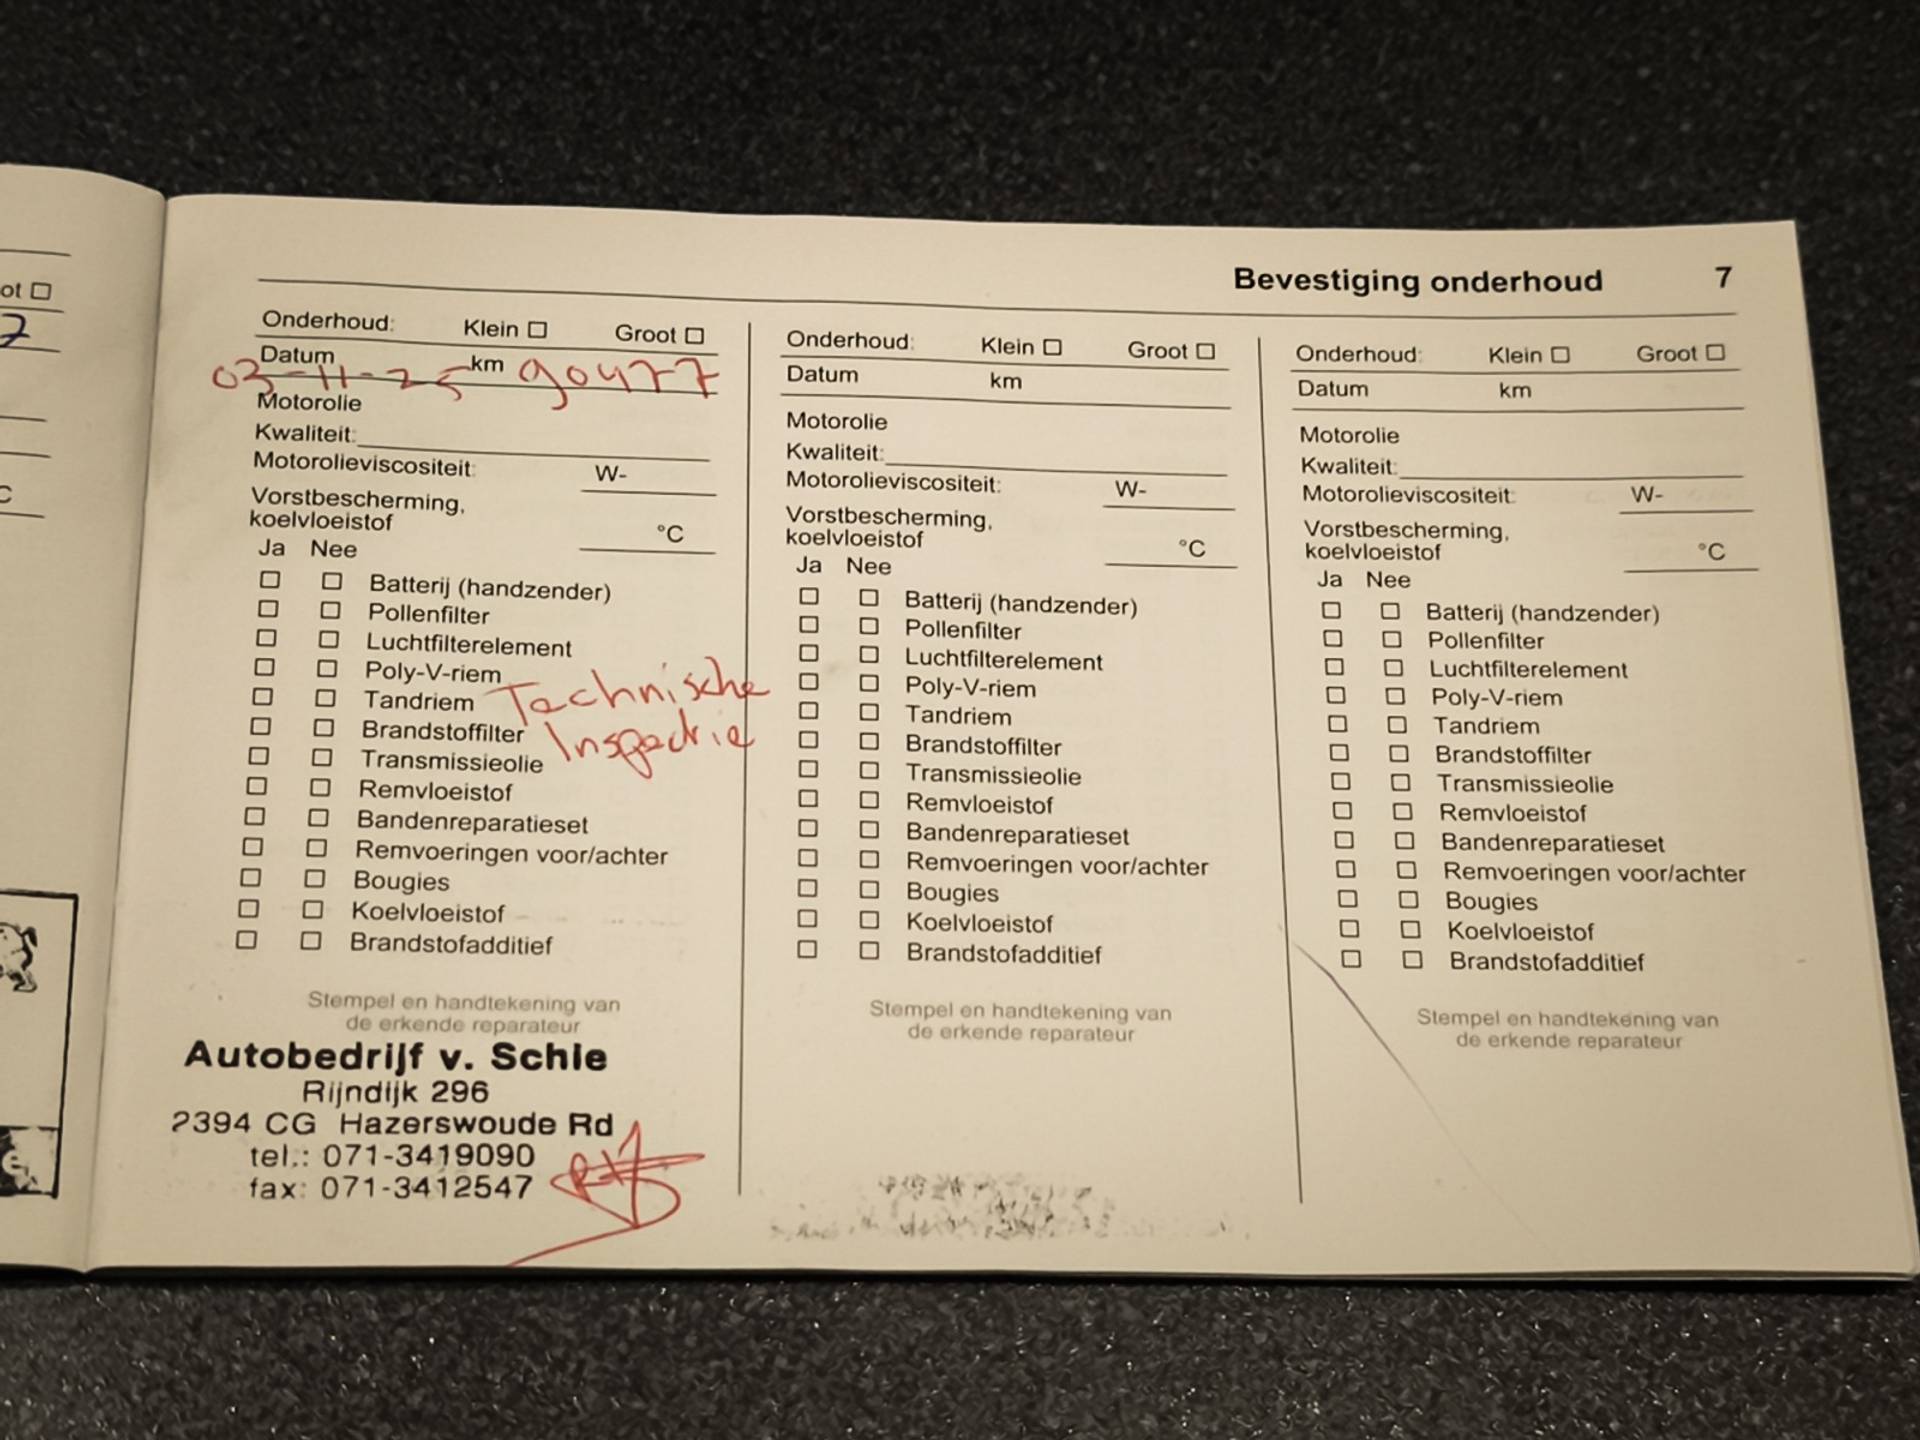 ot
7
C
Bevestiging onderhoud 7
Onderhoud: Klein Groot
Datum km
03-11-25 90477
Motorolie
Kwaliteit:
Motorolieviscositeit: W-
Vorstbescherming,
koelvloeistof °C
Ja Nee
Batterij (handzender)
Pollenfilter
Luchtfilterelement
Poly-V-riem
Tandriem
Brandstoffilter
Transmissieolie
Remvloeistof
Bandenreparatieset
Remvoeringen voor/achter
Bougies
Koelvloeistof
Brandstofadditief
Technische
Inspectie
Stempel en handtekening van
de erkende reparateur
Autobedrijf v. Schie
Rijndijk 296
2394 CG Hazerswoude Rd
tel.: 071-3419090
fax: 071-3412547
Onderhoud: Klein Groot
Datum km
Motorolie
Kwaliteit:
Motorolieviscositeit: W-
Vorstbescherming,
koelvloeistof °C
Ja Nee
Batterij (handzender)
Pollenfilter
Luchtfilterelement
Poly-V-riem
Tandriem
Brandstoffilter
Transmissieolie
Remvloeistof
Bandenreparatieset
Remvoeringen voor/achter
Bougies
Koelvloeistof
Brandstofadditief
Stempel en handtekening van
de erkende reparateur
Onderhoud: Klein Groot
Datum km
Motorolie
Kwaliteit:
Motorolieviscositeit: W-
Vorstbescherming,
koelvloeistof °C
Ja Nee
Batterij (handzender)
Pollenfilter
Luchtfilterelement
Poly-V-riem
Tandriem
Brandstoffilter
Transmissieolie
Remvloeistof
Bandenreparatieset
Remvoeringen voor/achter
Bougies
Koelvloeistof
Brandstofadditief
Stempel en handtekening van
de erkende reparateur